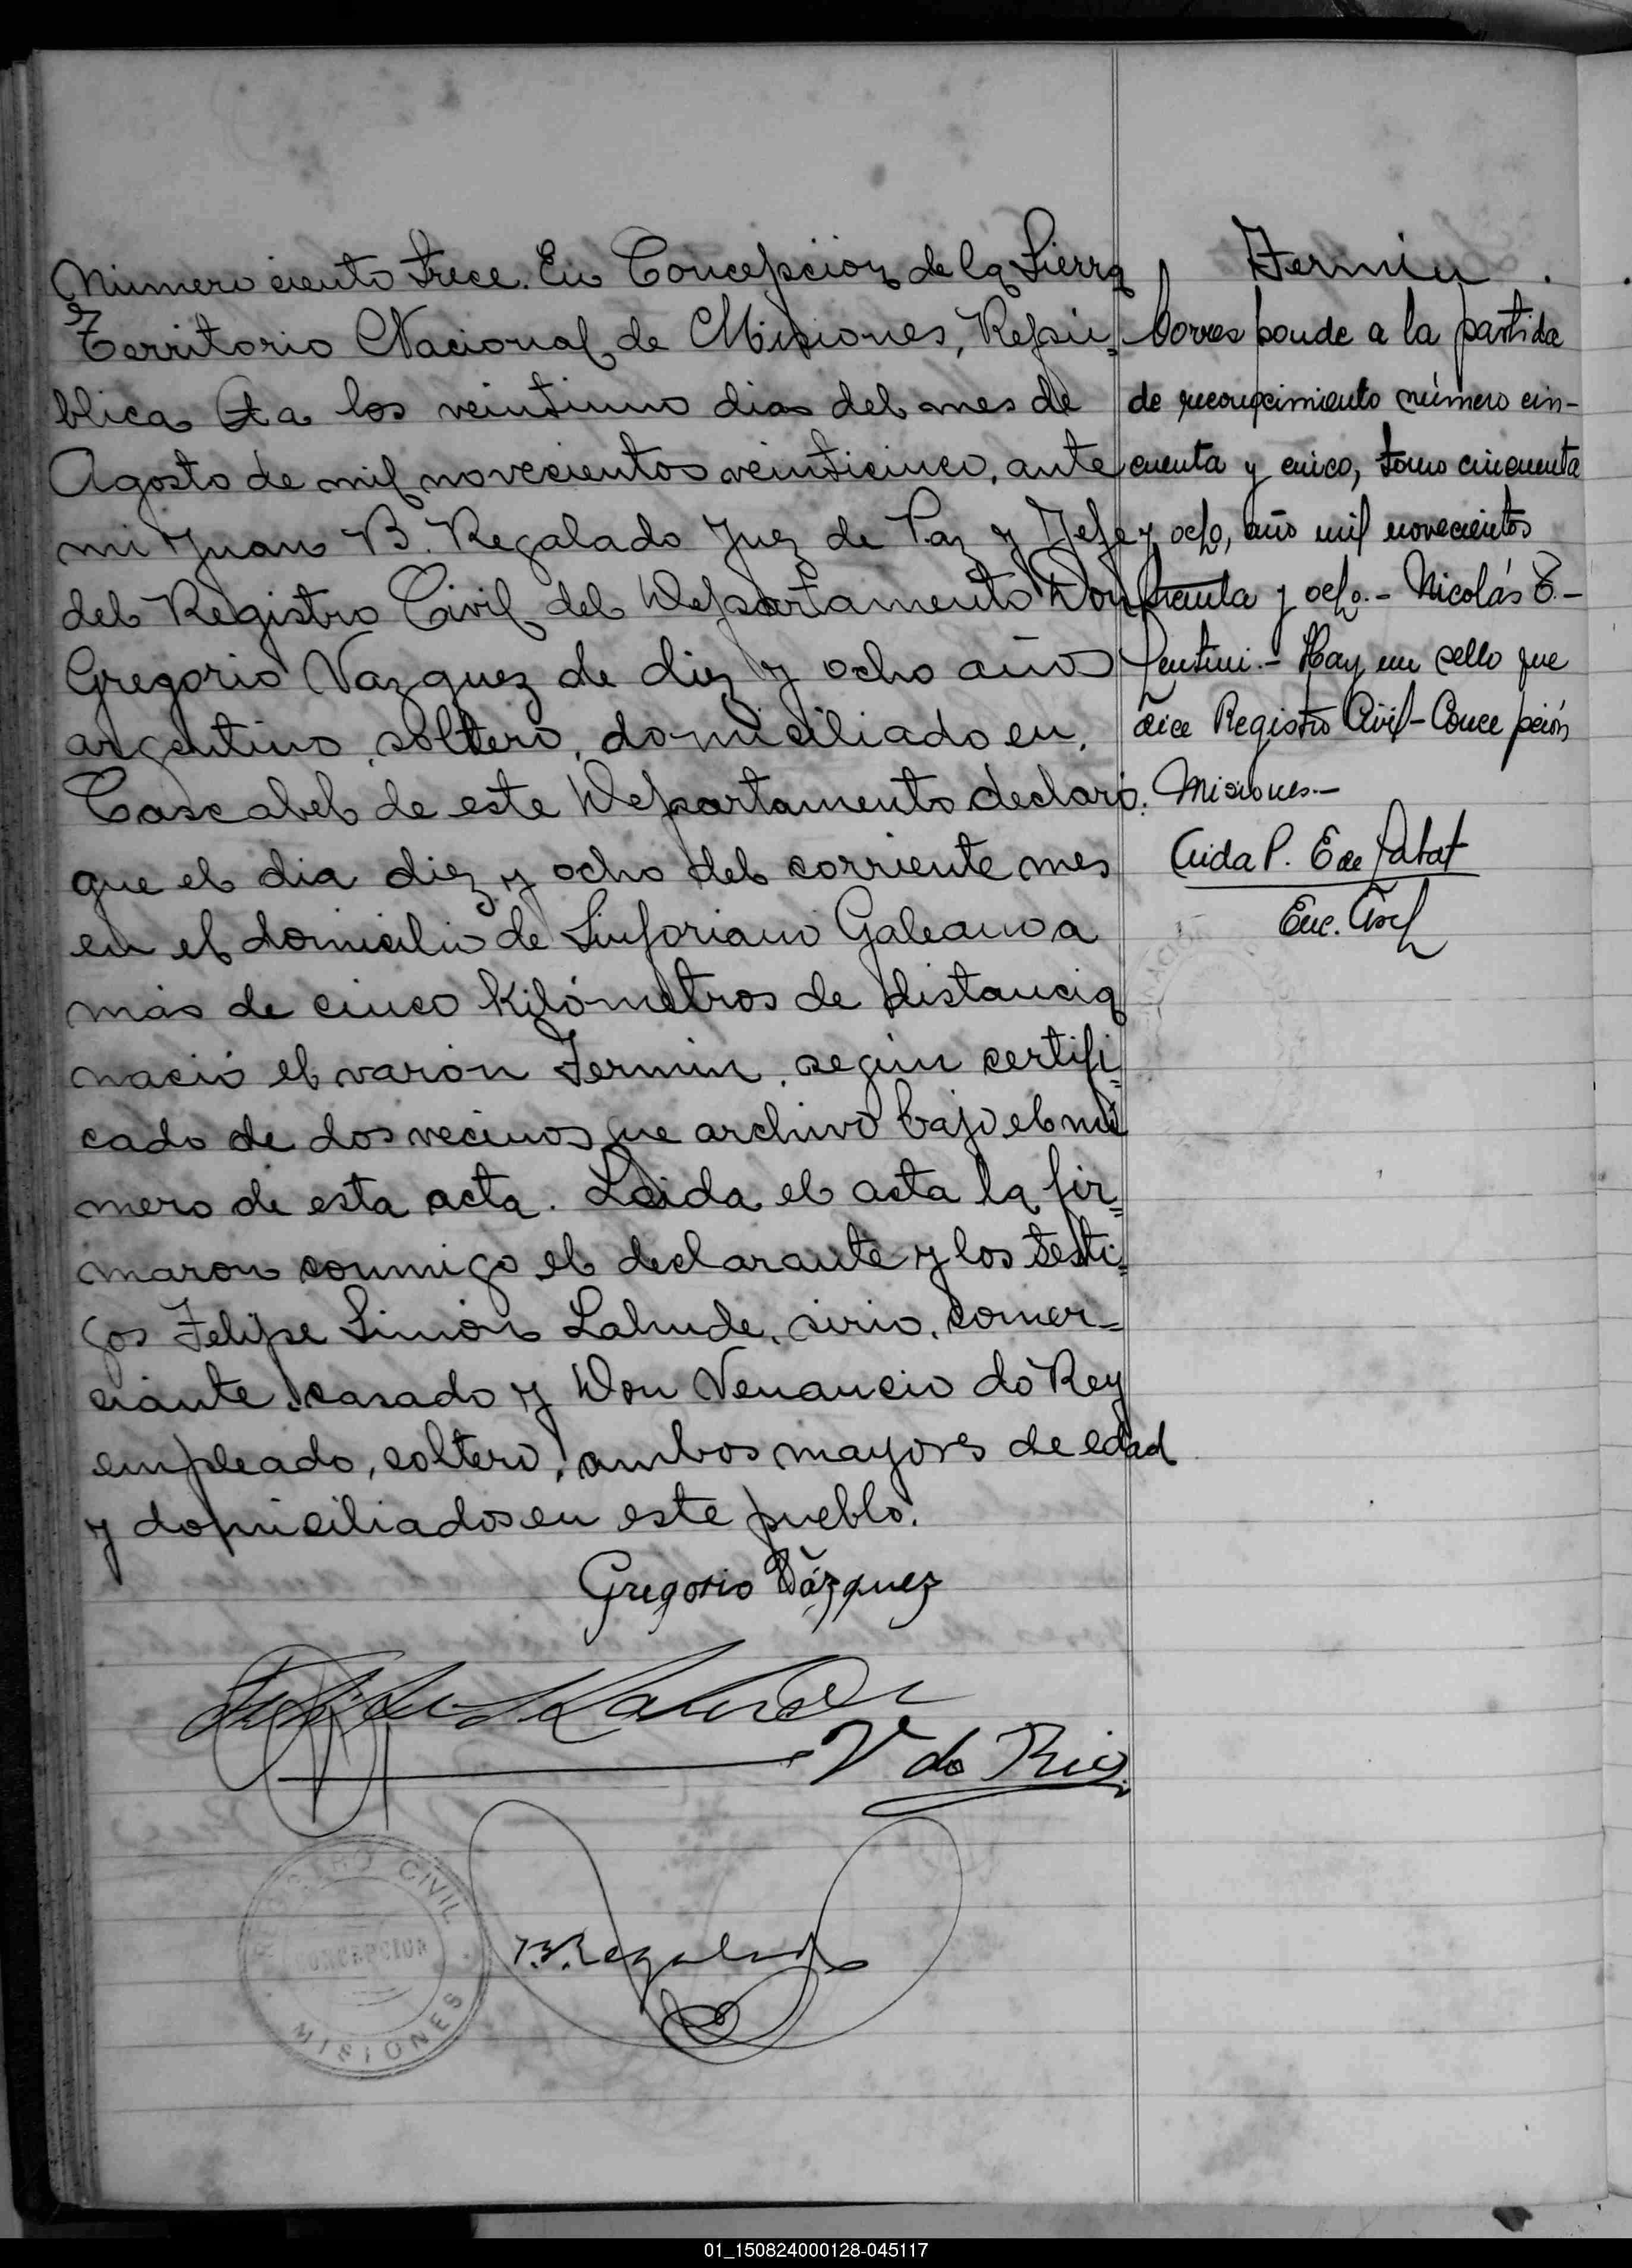 Número ciento trece. En Concepción de la Sierra
Territorio Nacional de Misiones, Repú=
blica A. a los veintiuno dias del mes de
Agosto de mil novecientos veinticinco, ante
mi Juan B. Regalado Juez de Paz y Jefe
del Registro Civil del Departamento Don
Gregorio Vazquez de diez y ocho años
argentino, soltero, domiciliado en,
Cascabel de este Departamento declaró.
que el dia diez y ocho del corriente mes
en el domicilio de Sinforiano Galeano a
más de cinco kilómetros de distancia
nació el varón Fermin, según certifi=
cado de dos vecinos que archivo bajo el nú
mero de esta acta. Leida el acta la fir=
maron conmigo el declarante y los testi=
gos Felipe Simón Lahude, sirio, comer=
ciante, casado y Don Venancio do Rey
empleado, soltero, ambos mayores de edad
y domiciliados en este pueblo.
Gregorio Vázquez
V do Rey
B. Regalado
REGISTRO CIVIL
CONCEPCION
MISIONES
Fermin.
Corresponde a la partida
de reconocimiento número cin-
cuenta y cinco, tomo cincuenta
y ocho, año mil novecientos
treinta y ocho.- Nicolás
Hay un sello que
dice Registro Civil-Concepción
Misiones.-
P. E de
Enc.
01_150824000128-045117